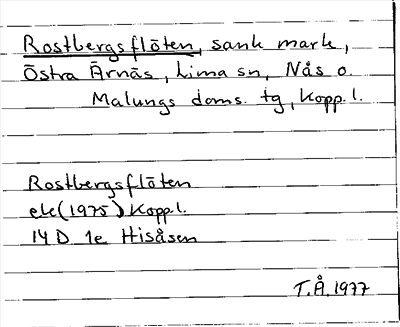 Rostbergsflöten, sank mark,
Östra Ärnäs, Lima sn, Nås o.
Malungs doms. tg, Kopp. l.
Rostbergsflöten
ek (1975) Kopp. l.
14 D 1e Hisåsen
T.Å. 1977